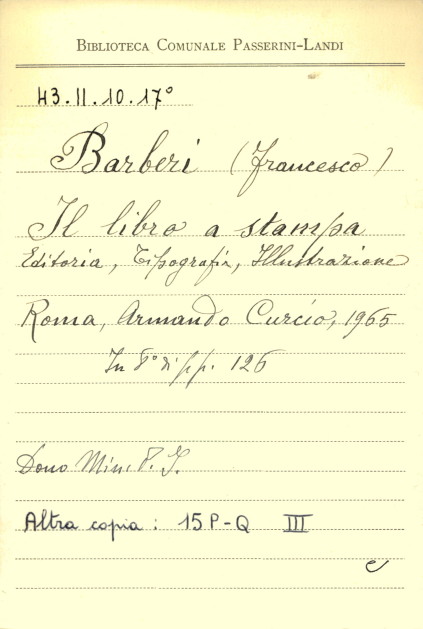 BIBLIOTECA COMUNALE PASSERINI-LANDI
43.II.10.17°
Barberi (Francesco)
Il libro a stampa
Editoria, Tipografia, Illustrazione
Roma, Armando Curcio, 1965
In 8° di pp. 126
Dono Min. P. I.
Altra copia: 15 P-Q III
e